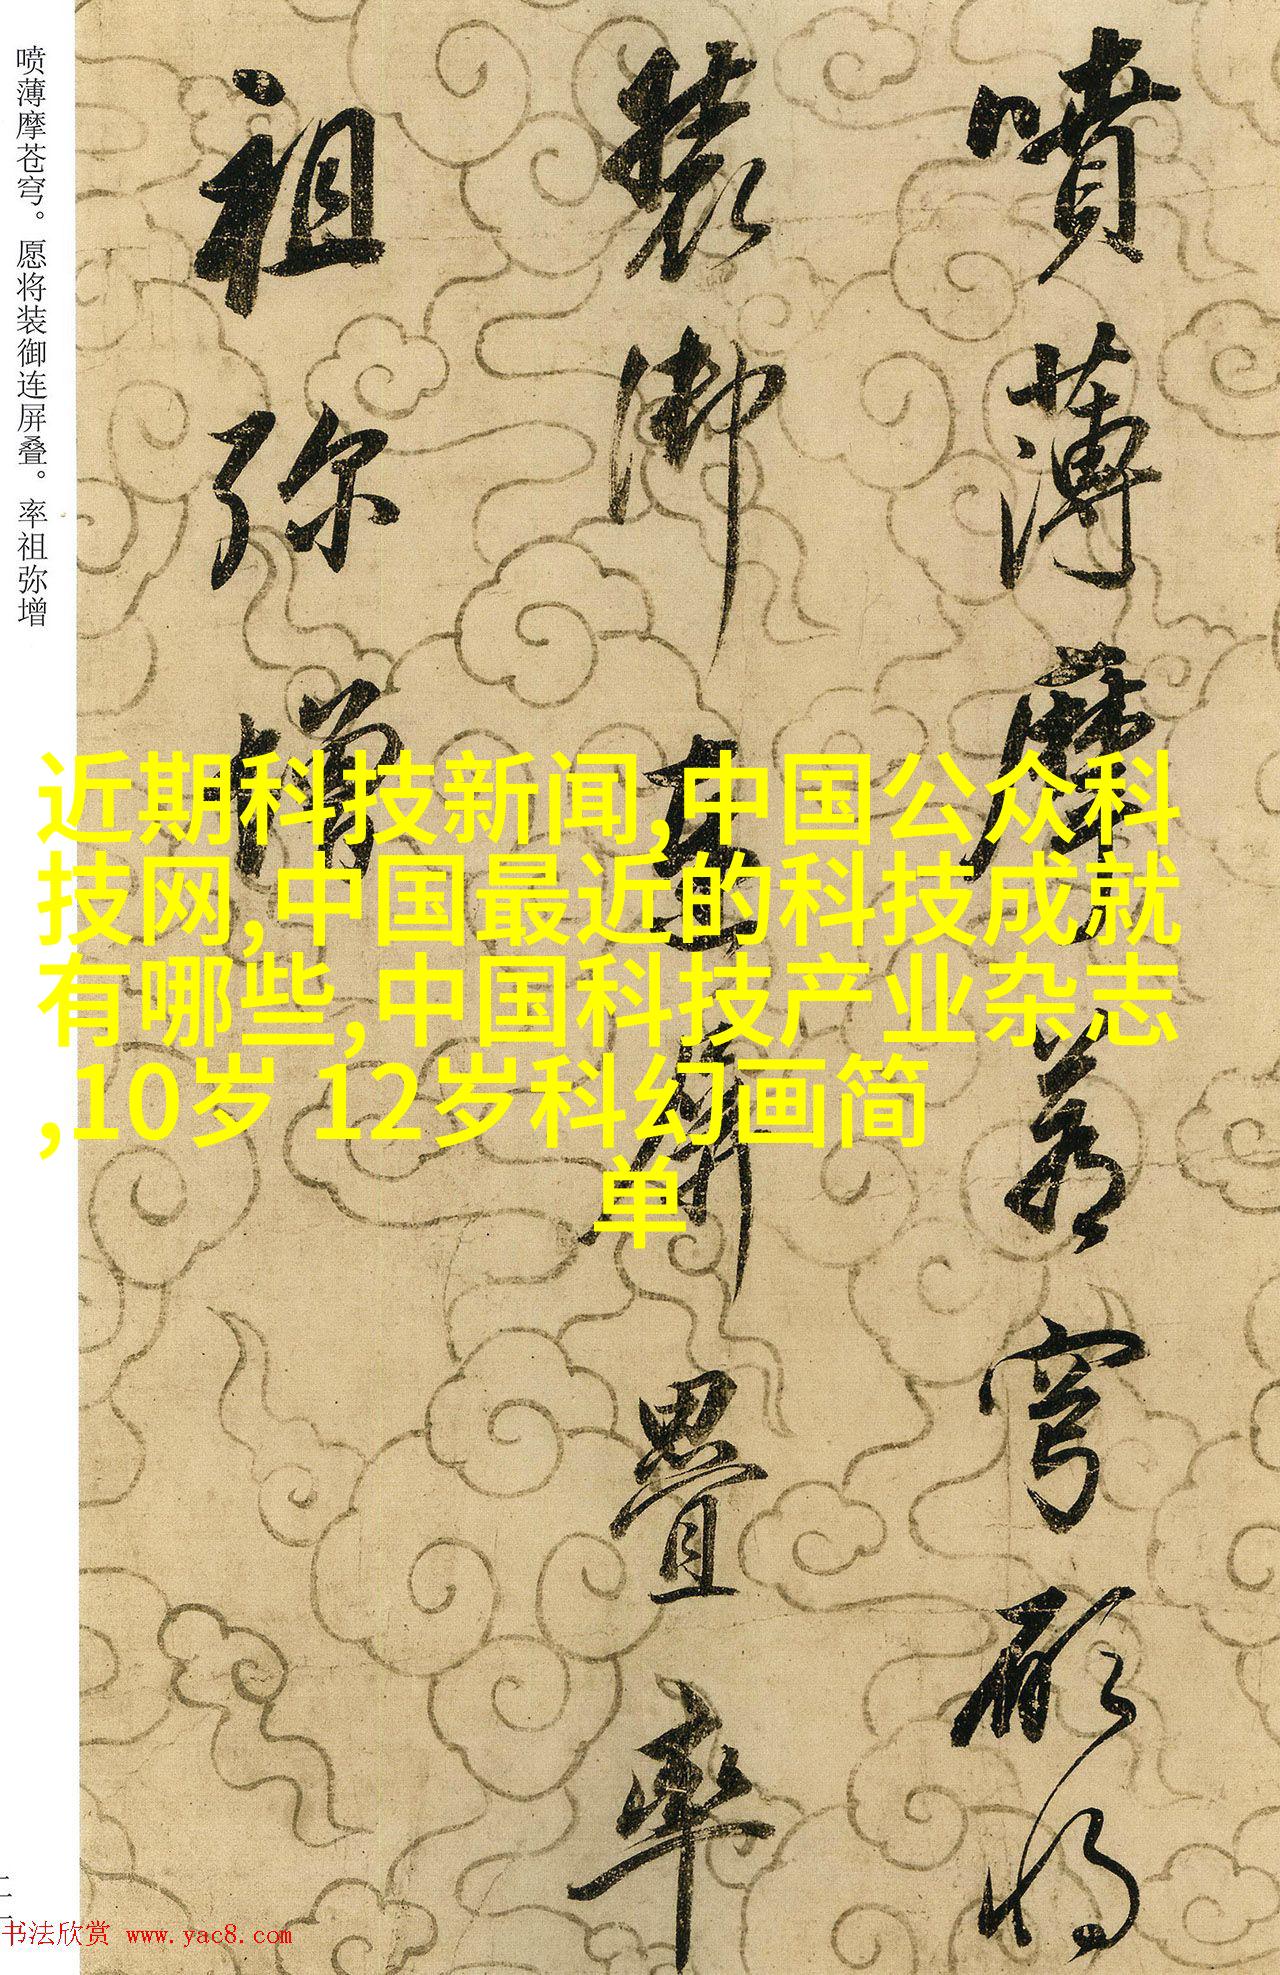 喷薄摩苍穹。愿将装御连屏叠。率祖弥增
噴薄摩蒼穹願將
裝御連屏疊率
祖弥增
近期科技新闻,中国公众科
技网,中国最近的科技成就
有哪些,中国科技产业杂志
,10岁 12岁科幻画简
单
书法欣赏 www.yac8.com